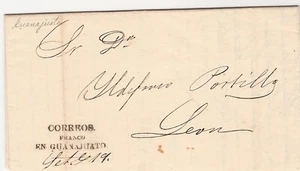 Guanajuato
Sr Dn
Ildefonso Portilla
Leon
CORREOS.
FRANCO
EN GUANAJUATO.
19.